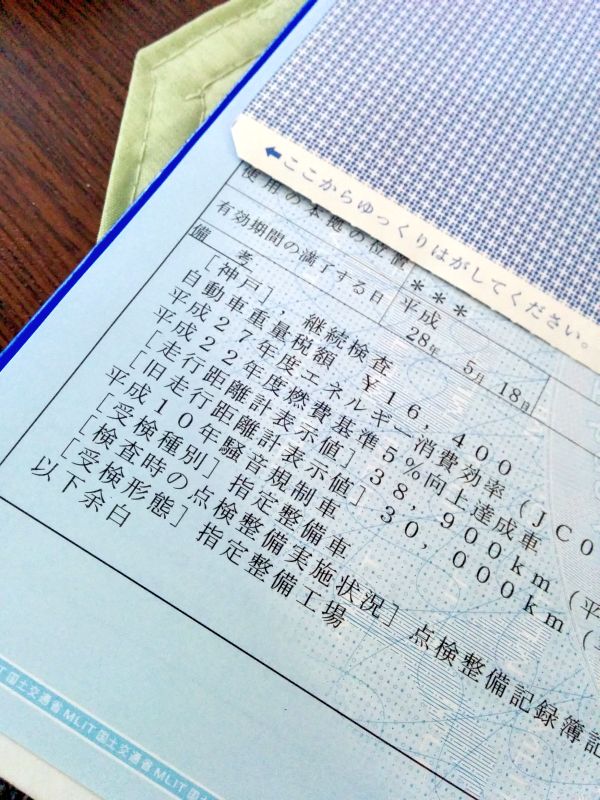 ここからゆっくりはがしてください。
使用の本拠の位置
***
有効期間の満了する日
平成
28年 5月 18日
備 考
[神戸],継続検査
自動車重量税額 ¥16,400
平成27年度エネルギー消費効率(JC0
平成22年度燃費基準5%向上達成車
[走行距離計表示値] 38,900km(平
[旧走行距離計表示値] 30,000km(
平成10年騒音規制車
[受検種別] 指定整備車
[検査時の点検整備実施状況] 点検整備記録簿記
[受検形態] 指定整備工場
以下余白
国土交通省 MLIT 国土交通省 MLIT 国土交通省 MLIT